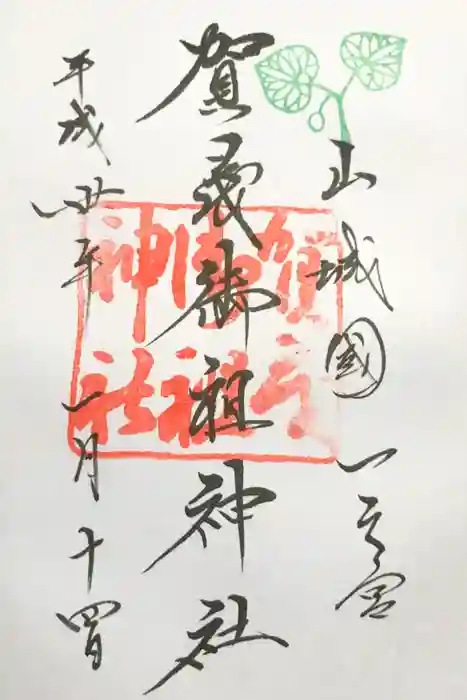 山城國一之宮
賀茂御祖神社
平成丗年一月十四日
賀茂
御祖
神社